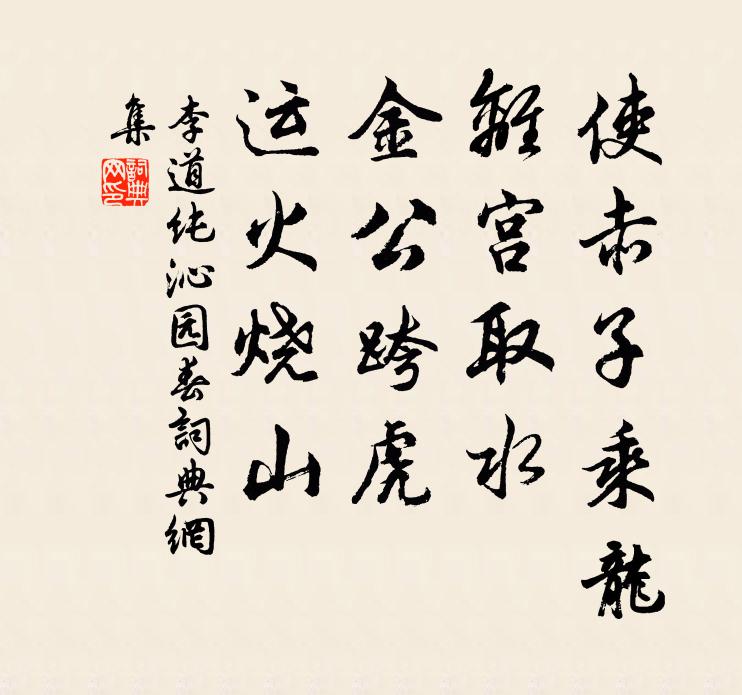 使赤子乘龍
離宫取水
金公跨虎
运火烧山
李道纯沁园春詞典網
集
詞典網印